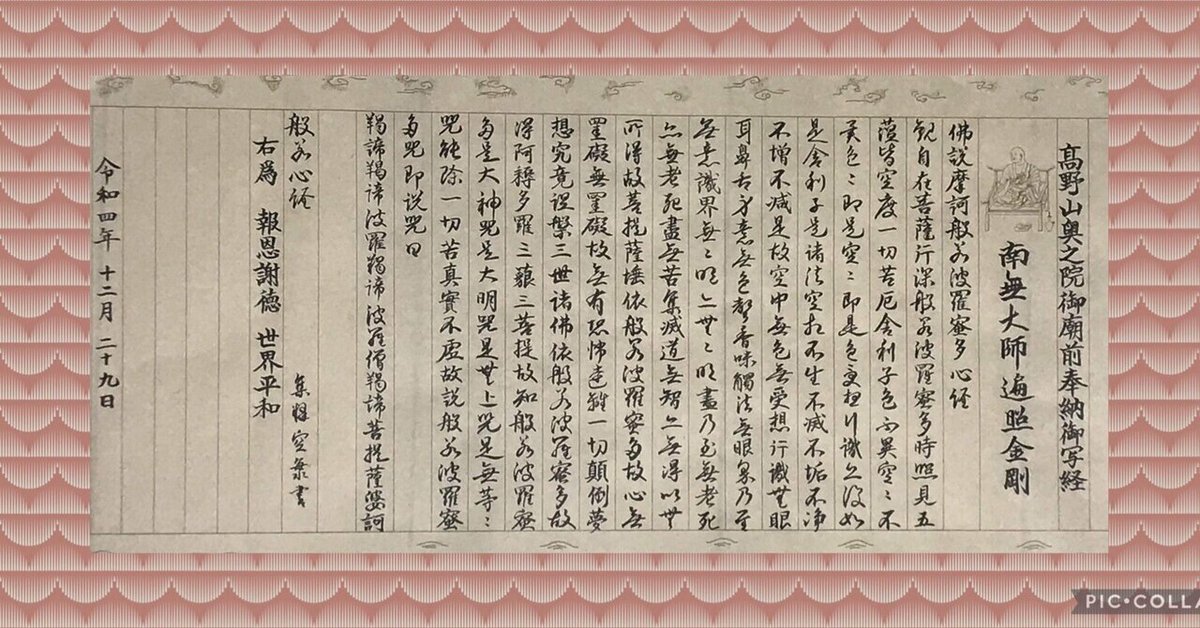 髙野山奥之院御廟前奉納御写経
南無大師遍照金剛
佛説摩訶般若波羅蜜多心経
観自在菩薩行深般若波羅蜜多時照見五
蘊皆空度一切苦厄舎利子色不異空〻不
異色〻即是空〻即是色受想行識亦復如
是舎利子是諸法空相不生不滅不垢不浄
不増不減是故空中無色無受想行識無眼
耳鼻舌身意無色聲香味觸法無眼界乃至
無意識界無〻明亦無〻明盡乃至無老死
亦無老死盡無苦集滅道無智亦無得以無
所得故菩提薩埵依般若波羅蜜多故心無
罣礙無罣礙故無有恐怖遠離一切顛倒夢
想究竟涅槃三世諸佛依般若波羅蜜多故
得阿耨多羅三藐三菩提故知般若波羅蜜
多是大神咒是大明咒是無上咒是無等〻
咒能除一切苦真實不虚故説般若波羅蜜
多咒即説咒曰
羯諦羯諦波羅羯諦波羅僧羯諦菩提薩婆訶
般若心経
右為 報恩謝徳 世界平和
令和四年 十二月 二十九日
PIC•COLLA